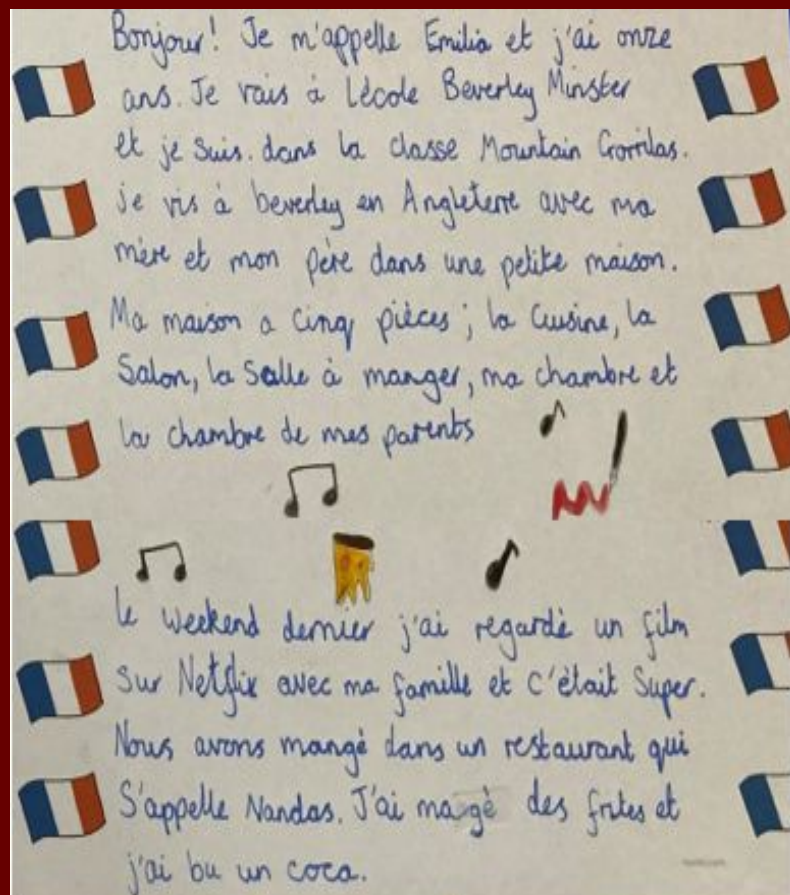 Bonjour! Je m'appelle Emilia et j'ai onze
ans. Je vais à L'école Beverley Minster
et je suis. dans la classe Mountain Gorrilas.
je vis à beverley en Angleterre avec ma
mère et mon père dans une petite maison.
Ma maison a Cinq pièces ; la Cuisine, la
Salon, la Salle à manger, ma chambre et
la chambre de mes parents
le weekend dernier j'ai regardé un film
sur Netflix avec ma famille et c'était Super.
Nous avons mangé dans un restaurant qui
S'appelle Nandos. J'ai magé des frites et
j'ai bu un coca.